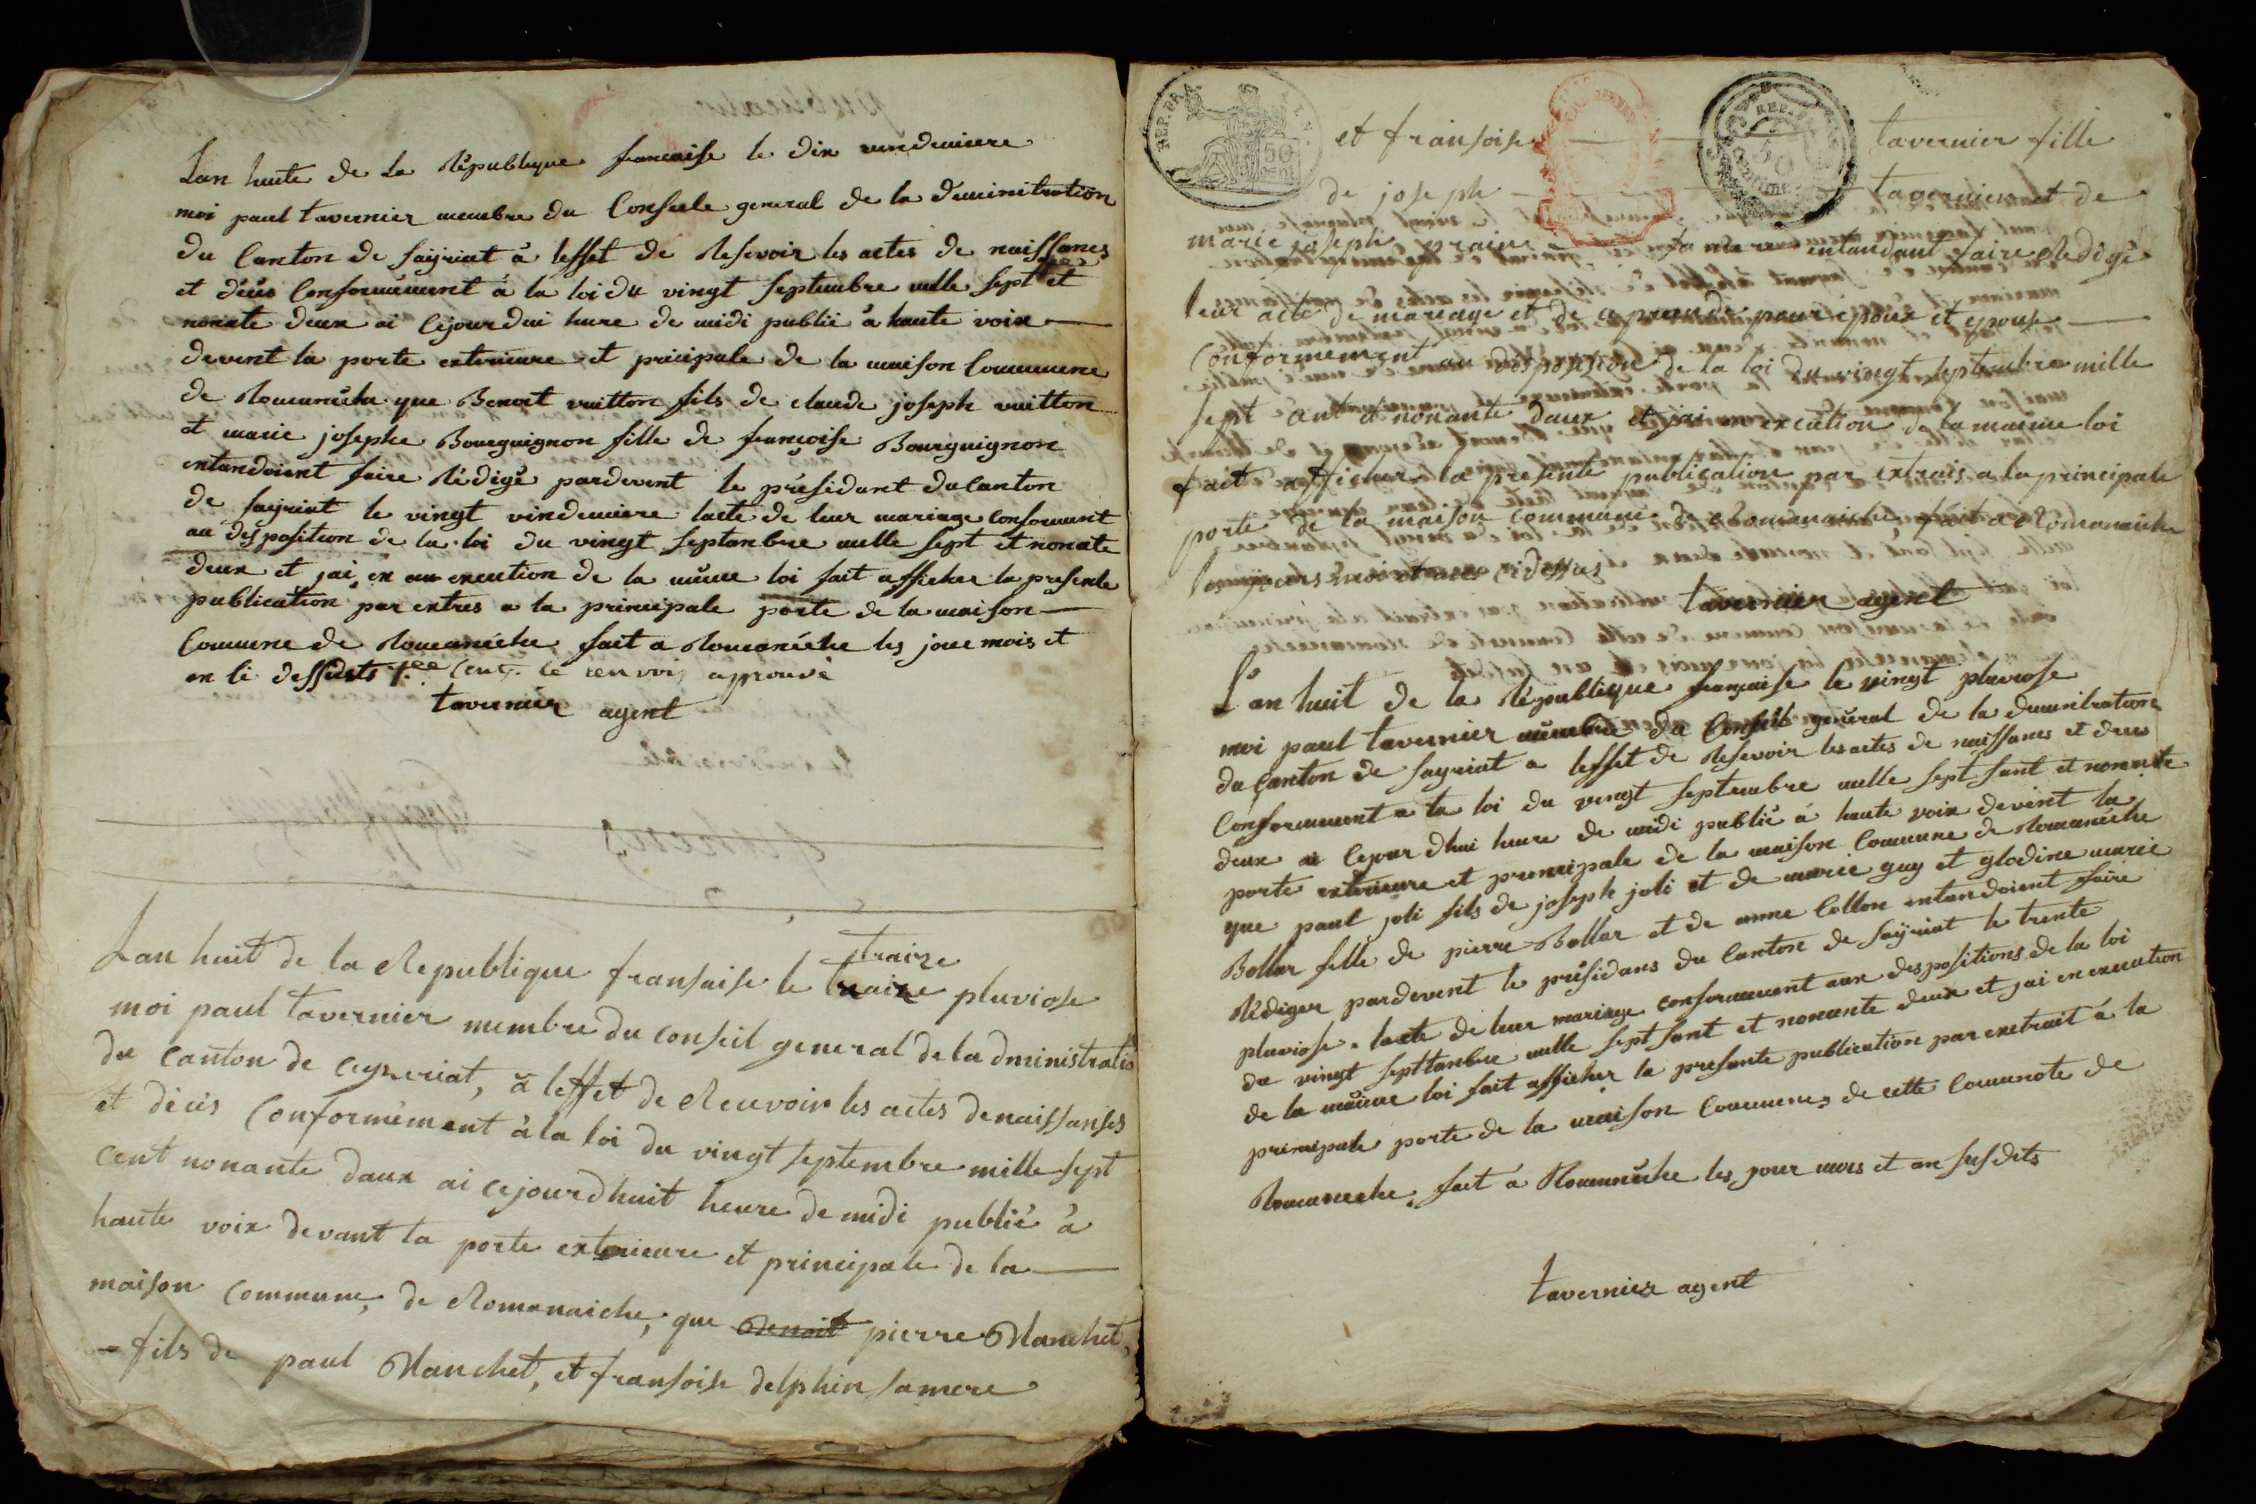 Lan huite de La Républeque francaise le dix vindemiere
moi paul tavernier membre du Consiele general de la deminitration
du Canton de sayriat à leffet de Resevoir les actes de naissances
et déces Conformément à la loi du vingt septembre mille sept et
nonate deux ai Cejourdui hure de midi publié à haute voix
devent la porte exterieure et pricipale de la maison Commune
de Romanéche que Benoit vuitton fils de claude joseph vuitton
et marie josephe Bourguignon fille de françoise Bourguignon
entandoient faire Rédigé pardevent le présidant du Canton
de sayriat le vingt vindemiere lacte de leur mariage conforment
au desposition de la loi du vingt septanbre mille sept et nonate
deux et jai en execution de la même loi fait afficher la presente
publication par extres a la principale porte de la maison
Commune de Romanéche fait a Romanéche les joue mois et
en li dessusts Cent le renvoi approuvé
tavernier agent
Lan huit de la Republique fransaise le traize pluviose
traize
moi paul tavernier membre du conseil general de ladministratio
du canton de ceyzeriat, à leffet de Recevoir les actes de naissanses
et décès Conformément à la loi du vingt septembre mille sept
cent nonante daux ai cejourdhuit heure de midi publié à
haute voix devant la porte exterieure et principale de la
maison commune, de Romanaiche, que Benoit pierre Manchet,
fils de paul Manchet, et fransoise delphin samere
REP. FRA.
50
REP.
50
et fransoise tavernier fille
de joseph tavernier et de
marie joseph prain sa mere entandant faire Redigé
leur acte de mareage et de ce prende pour epoux et epouse
Conformement au desposision de la loi du vingt septembre mille
sept cant et nonante daux et jai en excution de la maime loi
fait afficher la presente publication par extrais a la principale
porte de la maison commune de Romanaiche, fait a Romanaiche
les jours mois et ans cidessus
tavernier agent
L'an huit de la République française le vingt pluviose
moi paul tavernier membre du Conseil géneral de la duminitration
du Canton de sayriat a leffet de Resevoir les actes de naissances et deces
Conformement a la loi du vingt septembre mille sept sant et nonante
deux ai Cejour dhui heure de midi publié à haute voix devent la
porte exterieure et principale de la maison Commune de Romanéche
que paul joli fils de joseph joli et de marie guy et glodine marie
Bollar fille de pierre Bollar et de anne Collon entandoient faire
Rédiger pardevent le présidans du Canton de sayriat le trente
pluviose lacte de leur mariage conformement aux despositions de la loi
du vingt septtanbre mille sept sant et nonante deux et jai en execution
de la même loi fait afficher la presante publication par exetrait à la
principale porte de la maison Commune de cette Comunote de
Romaneche, fait à Romanéche les jour mois et an susdits
tavernier agent